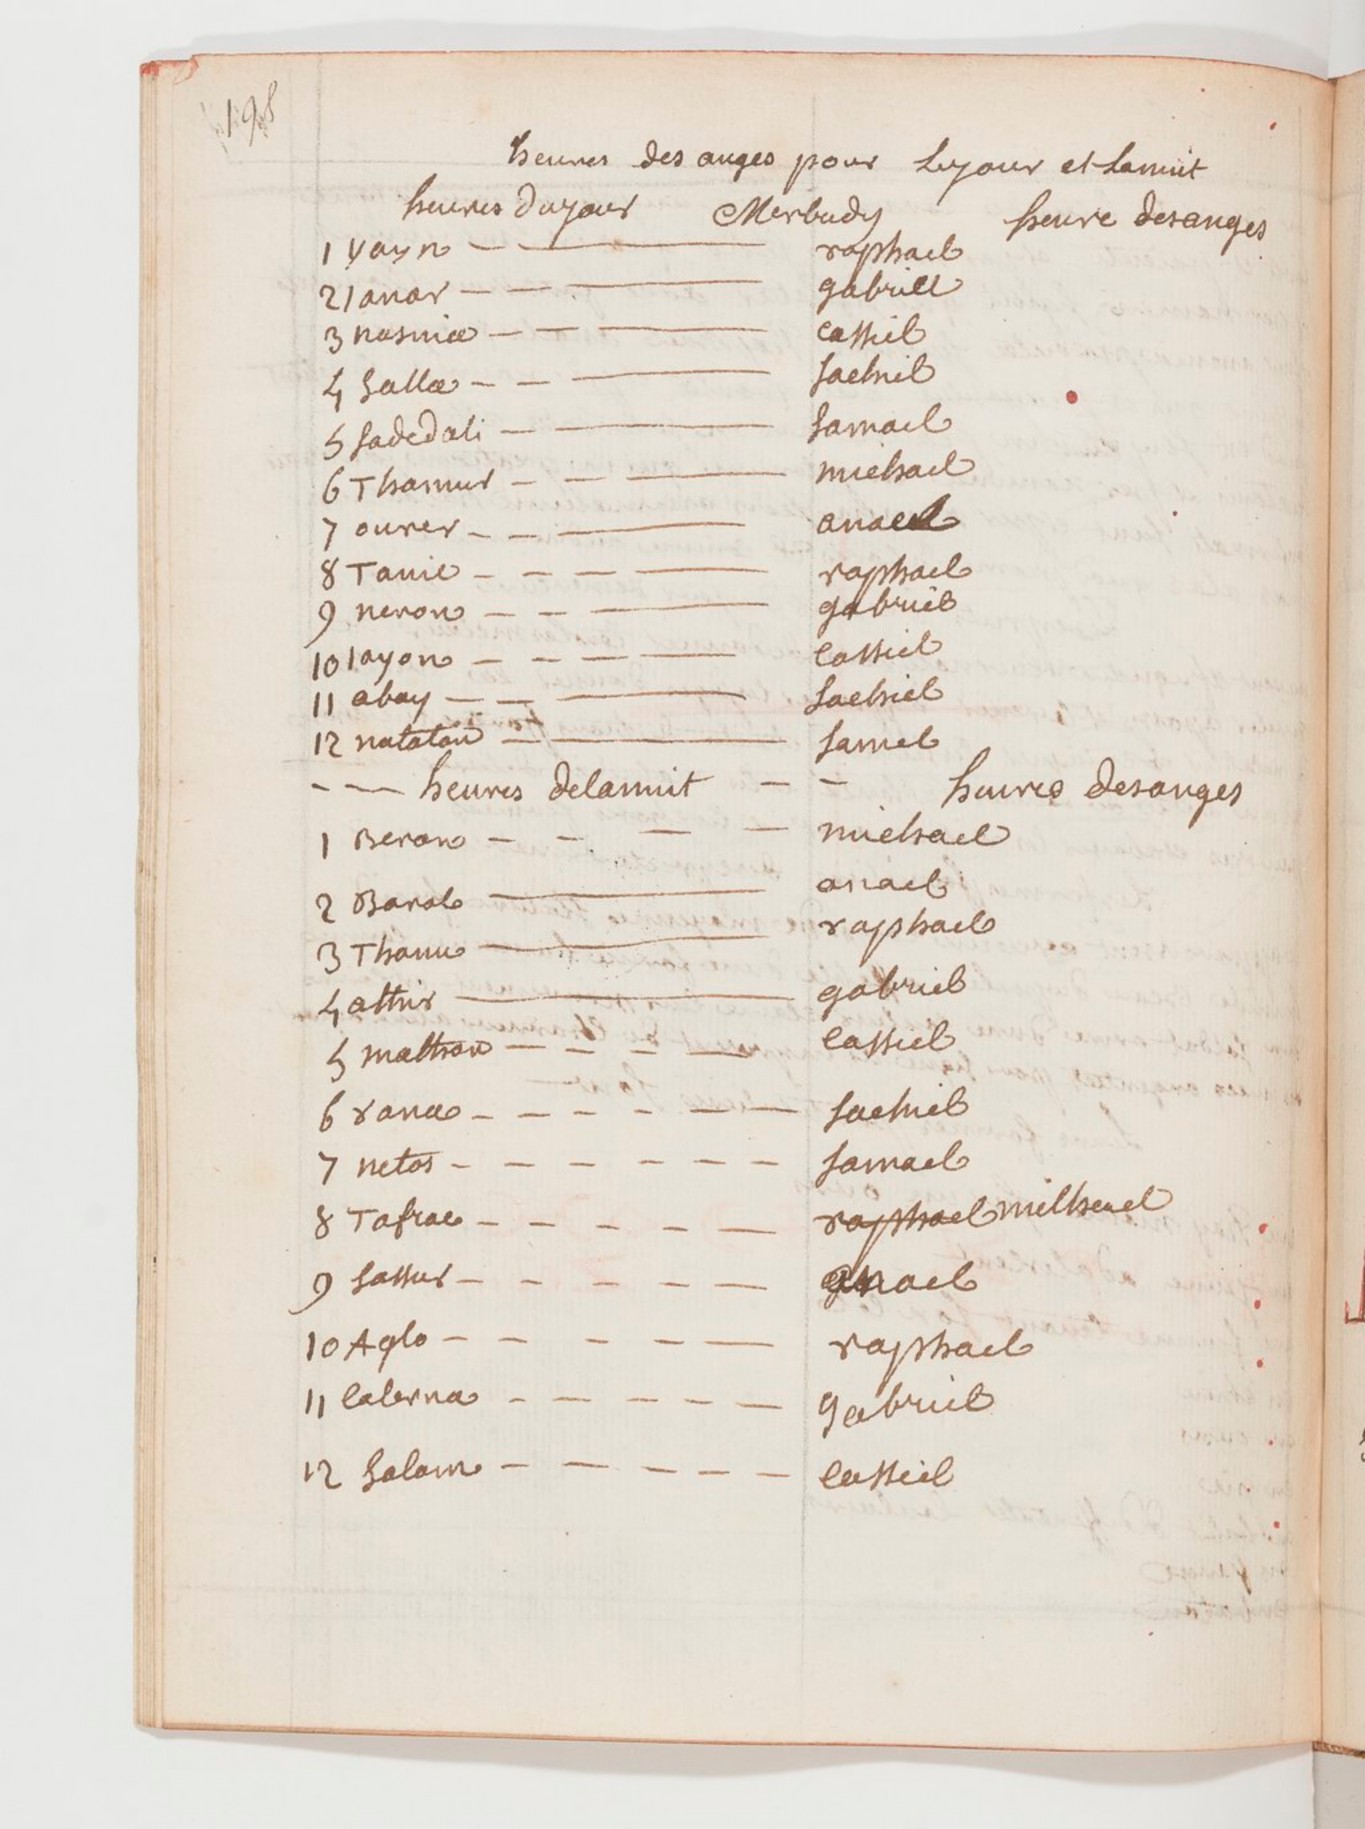 198
heures des anges pour lejour et lanuit
heures dujour Merbudy heure desanges
1 yayn — — raphael
2 Janor — — — gabriel
3 nasnia — — — cassiel
4 Salla — — — sachiel
5 sadedali — — samael
6 Thamur — — — michael
7 ourer — — — anael
8 Tanie — — — — raphael
9 neron — — — gabriel
10 iayon — — — — cassiel
11 abay — — — sachiel
12 natalon — — samel
— — heures delanuit — — heures desanges
1 Beron — — — — michael
2 Barol — anael
3 Thanu — raphael
4 athir — gabriel
5 mathon — — — — cassiel
6 rana — — — — — — sachiel
7 netos — — — — — — samael
8 Tafrac — — — — — raphael michael
9 sassur — — — — — anael
10 Aglo — — — — — raphael
11 calerna — — — — — gabriel
12 salam — — — — — cassiel